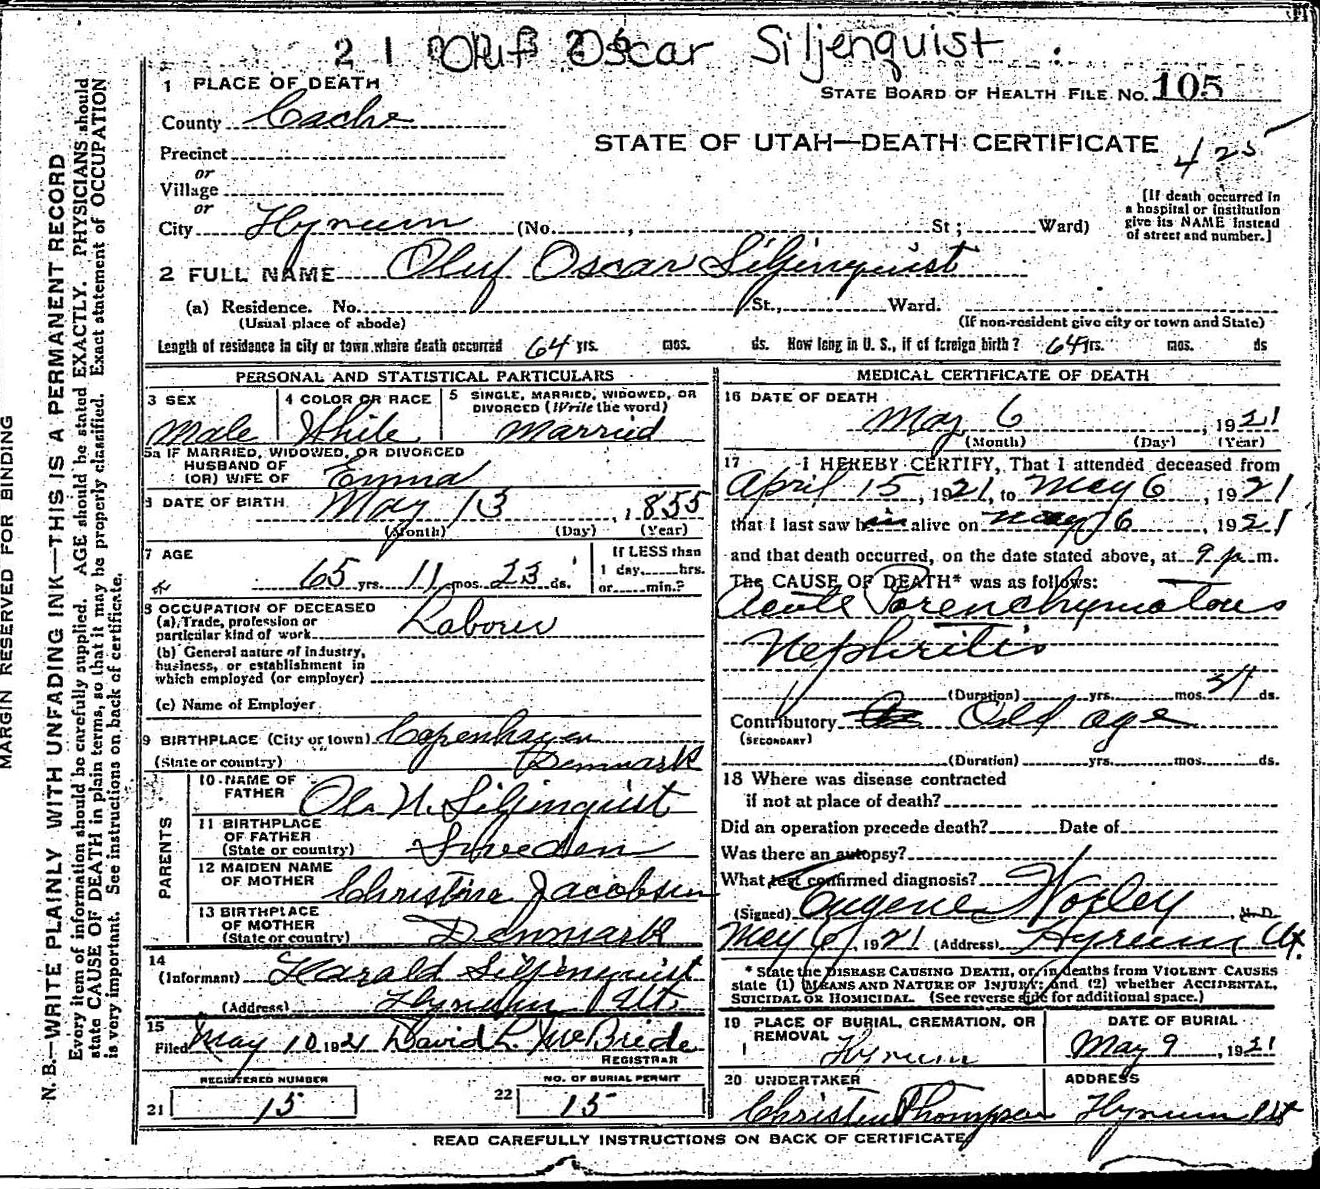 21 Oluf Oscar Siljenquist
1 PLACE OF DEATH
STATE BOARD OF HEALTH FILE NO. 105
County Cache
STATE OF UTAH—DEATH CERTIFICATE 425
Precinct
or
Village
or
[If death occurred in
a hospital or institution
give its NAME instead
of street and number.]
City Hyrum (No. , St ; Ward)
2 FULL NAME Oluf Oscar Siljenquist
(a) Residence. No. St., Ward.
(Usual place of abode) (If non-resident give city or town and State)
Length of residence in city or town where death occurred 64 yrs. mos. ds. How long in U. S., if of foreign birth? 64 yrs. mos. ds
PERSONAL AND STATISTICAL PARTICULARS
3 SEX 4 COLOR OR RACE 5 SINGLE, MARRIED, WIDOWED, OR
DIVORCED (Write the word)
Male White Married
5a IF MARRIED, WIDOWED, OR DIVORCED
HUSBAND OF
(OR) WIFE OF Emma
6 DATE OF BIRTH May 13, 1855
(Month) (Day) (Year)
7 AGE If LESS than
65 yrs. 11 mos. 23 ds. 1 day, hrs.
or min.?
8 OCCUPATION OF DECEASED
(a) Trade, profession or
particular kind of work Laborer
(b) General nature of industry,
business, or establishment in
which employed (or employer)
(c) Name of Employer
9 BIRTHPLACE (City or town) Copenhagen
(State or country) Denmark
PARENTS
10 NAME OF
FATHER Ola N. Siljenquist
11 BIRTHPLACE
OF FATHER
(State or country) Sweden
12 MAIDEN NAME
OF MOTHER Christina Jacobsen
13 BIRTHPLACE
OF MOTHER
(State or country) Denmark
14
(Informant) Harald Siljenquist
(Address) Hyrum Ut.
15
Filed May 10 1921 David L. McBride
REGISTRAR
REGISTERED NUMBER NO. OF BURIAL PERMIT
21 15 22 15
MEDICAL CERTIFICATE OF DEATH
16 DATE OF DEATH
May 6, 1921
(Month) (Day) (Year)
17 I HEREBY CERTIFY, That I attended deceased from
April 15, 1921, to May 6, 1921
that I last saw him alive on May 6 1921
and that death occurred, on the date stated above, at 9 p. m.
The CAUSE OF DEATH* was as follows:
Acute Parenchymatous
Nephritis
(Duration) yrs. mos. 21 ds.
Contributory Old age
(SECONDARY)
(Duration) yrs. mos. ds.
18 Where was disease contracted
if not at place of death?
Did an operation precede death? Date of
Was there an autopsy?
What test confirmed diagnosis?
(Signed) Eugene Worley, M.D.
May 6, 1921 (Address) Hyrum, Ut.
* State the DISEASE CAUSING DEATH, or in deaths from VIOLENT CAUSES
state (1) MEANS AND NATURE OF INJURY; and (2) whether ACCIDENTAL,
SUICIDAL OR HOMICIDAL. (See reverse side for additional space.)
19 PLACE OF BURIAL, CREMATION, OR DATE OF BURIAL
REMOVAL
Hyrum May 9, 1921
20 UNDERTAKER ADDRESS
Christen Thompson Hyrum Ut
READ CAREFULLY INSTRUCTIONS ON BACK OF CERTIFICATE
MARGIN RESERVED FOR BINDING
N. B.—WRITE PLAINLY WITH UNFADING INK—THIS IS A PERMANENT RECORD
Every item of information should be carefully supplied. AGE should be stated EXACTLY. PHYSICIANS should
state CAUSE OF DEATH in plain terms, so that it may be properly classified. Exact statement of OCCUPATION
is very important. See instructions on back of certificate.